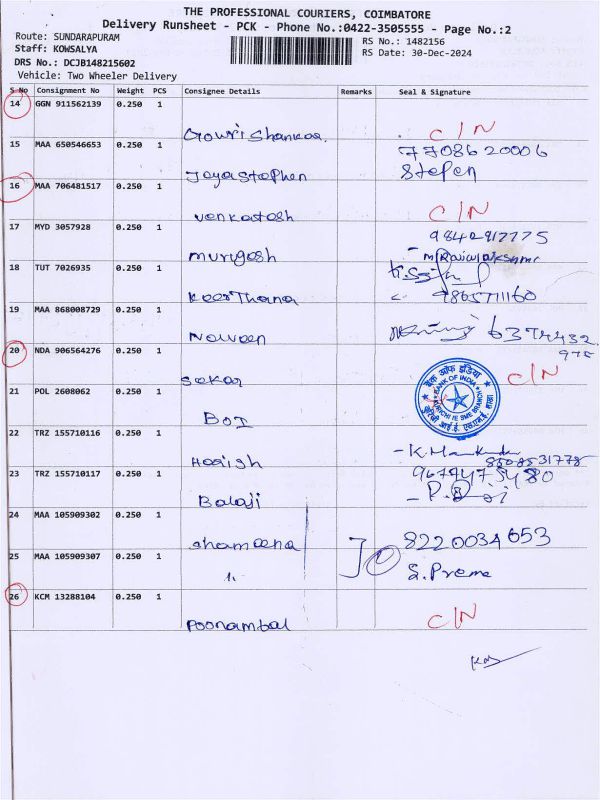 THE PROFESSIONAL COURIERS, COIMBATORE
Delivery Runsheet - PCK - Phone No.:0422-3505555 - Page No.:2
Route: SUNDARAPURAM
RS No.: 1482156
Staff: KOWSALYA
RS Date: 30-Dec-2024
DRS No.: DCJB148215602
Vehicle: Two Wheeler Delivery
S No Consignment No Weight PCS Consignee Details Remarks Seal & Signature
14 GGN 911562139 0.250 1
Gouri Shankar. C/N
15 MAA 650546653 0.250 1 7708620006
Jeya Stephen Stefen
16 MAA 706481517 0.250 1
Venkatesh C/N
17 MYD 3057928 0.250 1 9842917775
Murugesh
18 TUT 7026935 0.250 1
Keerthana 9865711160
19 MAA 868008729 0.250 1
Naveen 6374432
975
20 NDA 906564276 0.250 1
Sekar C/N
21 POL 2608062 0.250 1
BOI
बैंक ऑफ इंडिया
BANK OF INDIA
22 TRZ 155710116 0.250 1
Harish 8508531778
23 TRZ 155710117 0.250 1
Balaji
24 MAA 105909302 0.250 1
Shameena 8220034653
25 MAA 105909307 0.250 1
S. Prema
26 KCM 13288104 0.250 1
Poonambal C/N